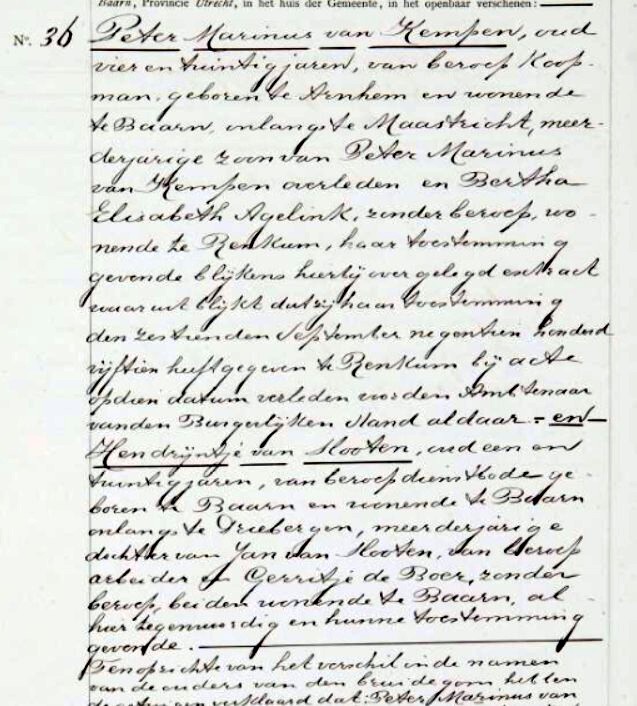 Baarn, Provincie Utrecht, in het huis der Gemeente, in het openbaar verschenen:
No. 36 Peter Marinus van Kempen, oud
vier en twintig jaren, van beroep Koop-
man, geboren te Arnhem en wonende
te Baarn, onlangs te Maastricht, meer-
derjarige zoon van Peter Marinus
van Kempen overleden en Bertha
Elisabeth Agelink, zonder beroep, wo-
nende te Renkum, haar toestemming
gevende blijkens hierbij overgelegd extract
waaruit blijkt dat zij haar toestemming
den zestienden September negentien honderd
vijftien heeft gegeven te Renkum bij acte
op dien datum verleden voor den Ambtenaar
van den Burgerlijken Stand aldaar - en
Hendrijntje van Slooten, oud een en
twintig jaren, van beroep dienstbode ge-
boren te Baarn en wonende te Baarn
onlangs te Driebergen, meerderjarige
dochter van Jan van Slooten, van beroep
arbeider en Gerritje de Boer, zonder
beroep, beiden wonende te Baarn, al-
hier tegenwoordig en hunne toestemming
gevende.
Ten opzichte van het verschil in de namen
van de ouders van den bruidegom hebben
de getuigen verklaard dat Peter Marinus van